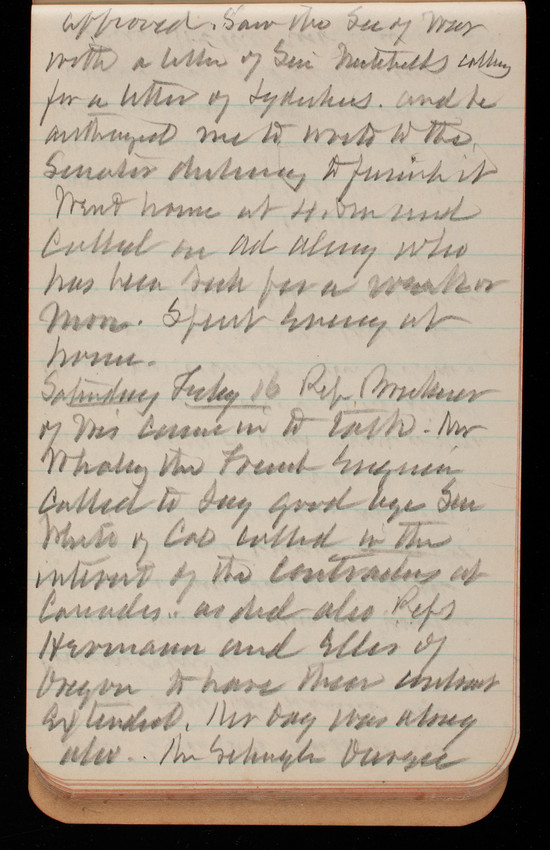 approved. Saw the Sec of War
with a letter of Sen Mitchells calling
for a letter of Lydeckers. and he
authorized me to write to the
Senator declining to furnish it
Went home at 4. P.m and
called on along who
has been sick for a week or
more. Spent Evening at
home.
Saturday Feby 16 Rep. Bruckner
of Mis came in to talk. Mr
Whaley the French Engineer
called to say good bye Sen
White of Cal called in the
interest of the Contractors at
Cascades. as did also Reps
Hermann and Ellis of
Oregon to have their contract
Extended. Mr Day was along
also. Mr